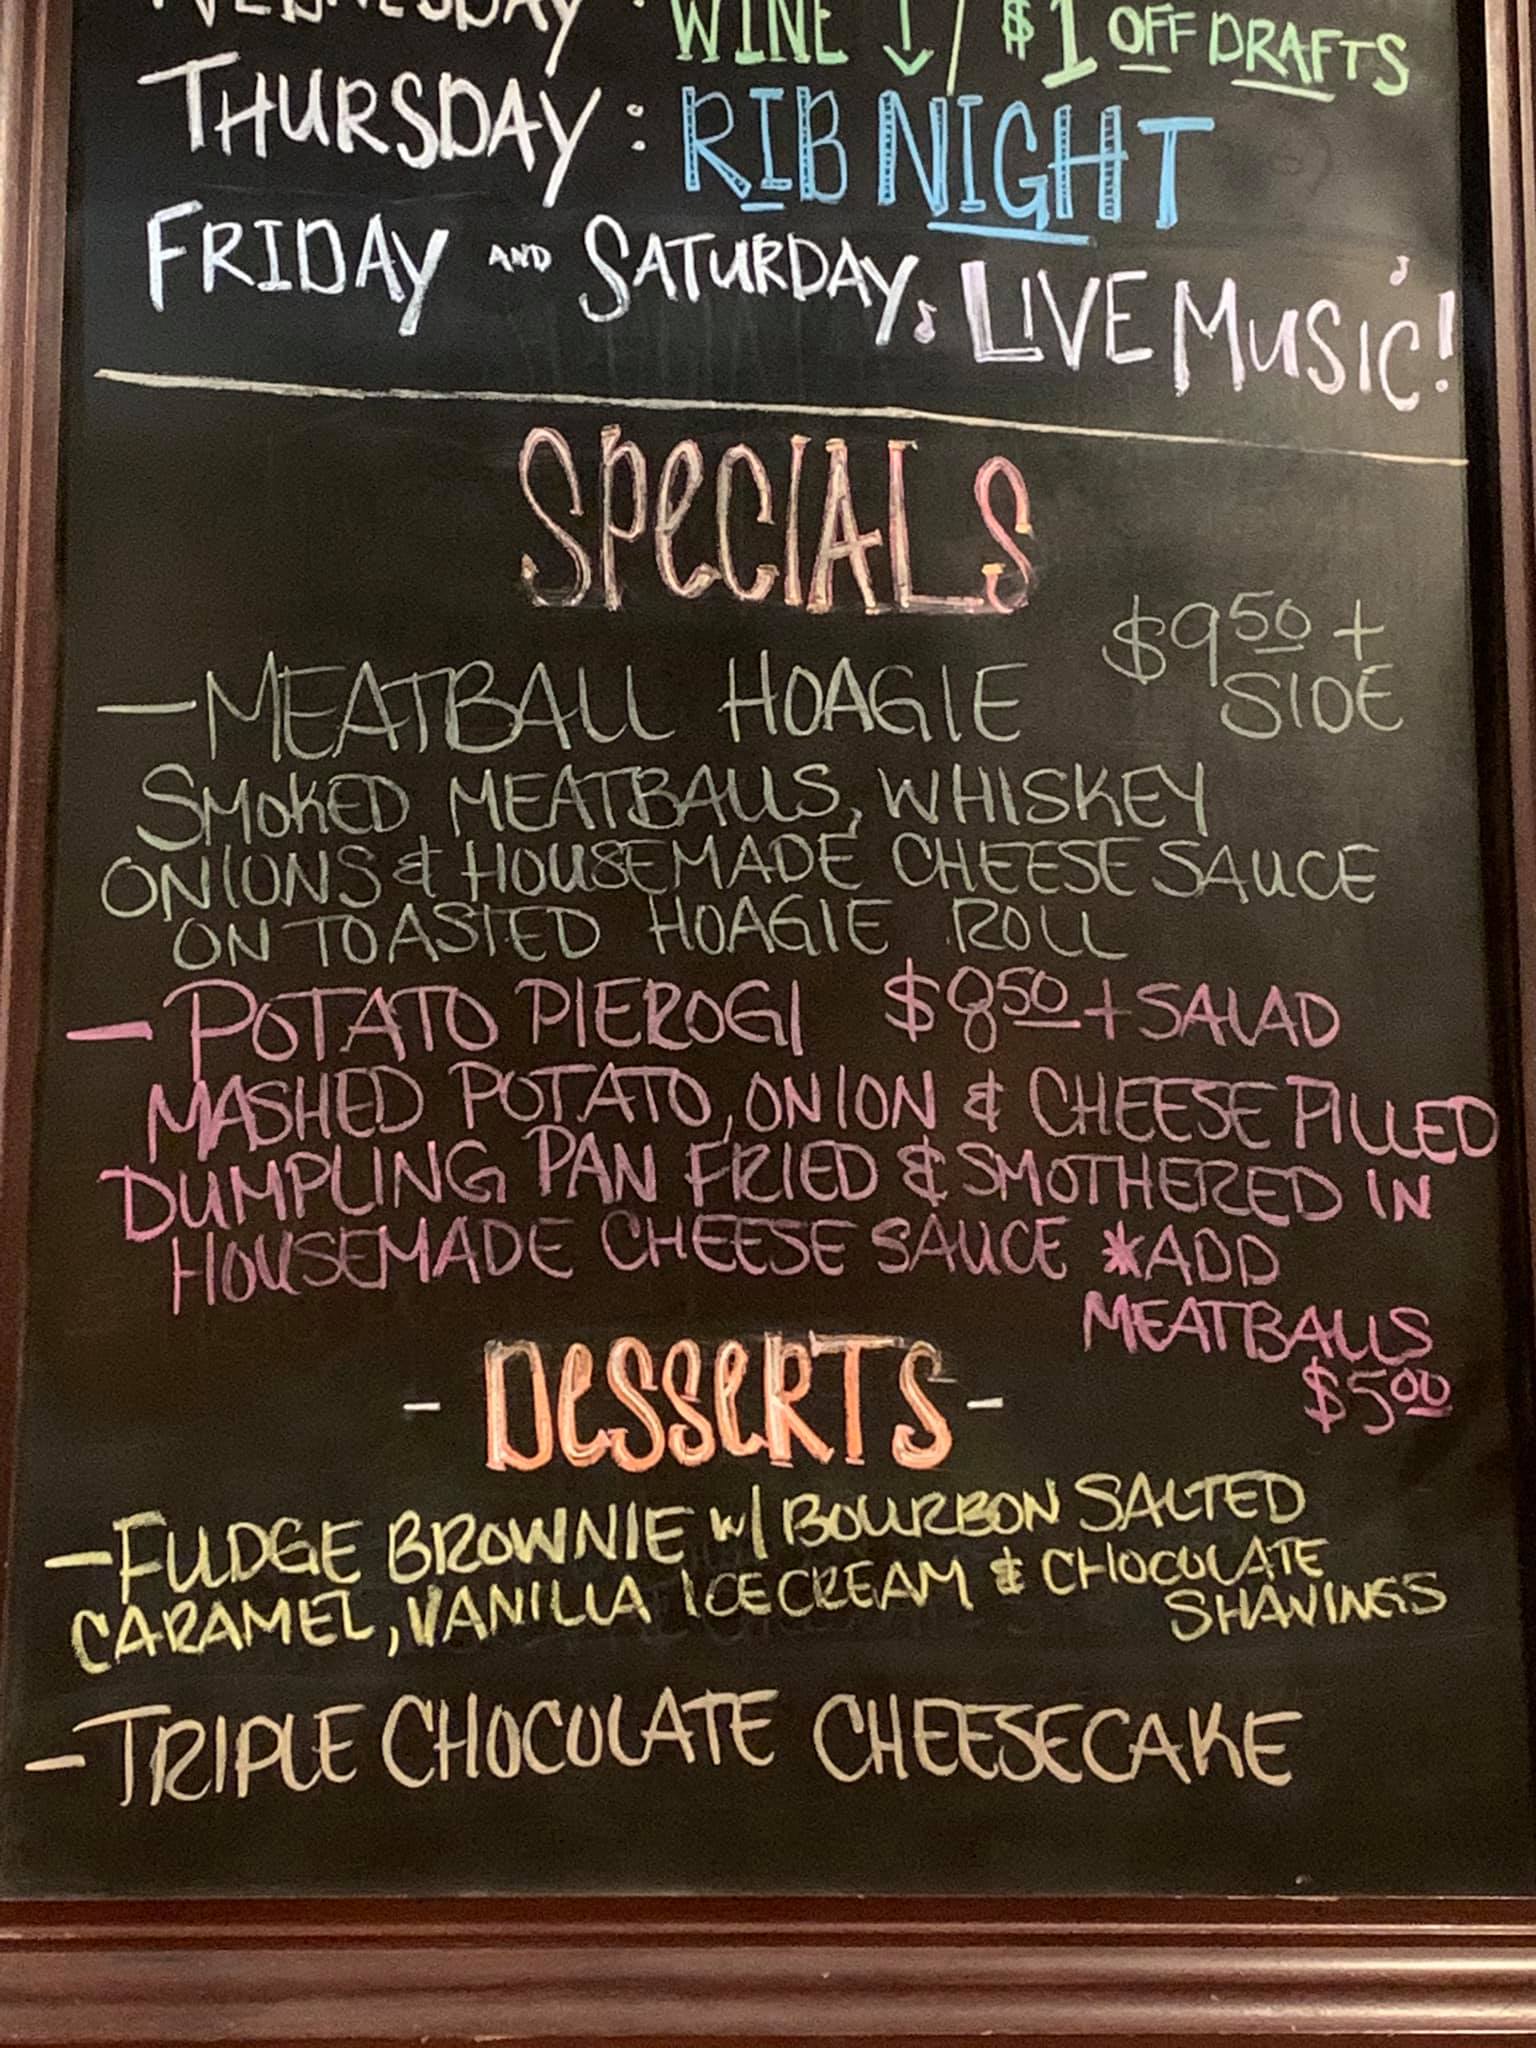 WEDNESDAY: WINE ↓ / $1 OFF DRAFTS
THURSDAY: RIB NIGHT
FRIDAY AND SATURDAY, LIVE MUSIC!
SPeCIALS
—MEATBALL HOAGIE $9.50 + SIDE
SMOKED MEATBALLS, WHISKEY
ONIONS & HOUSEMADE CHEESE SAUCE
ON TOASTED HOAGIE ROLL
— POTATO PIEROGI $8.50 + SALAD
MASHED POTATO, ONION & CHEESE FILLED
DUMPLING PAN FRIED & SMOTHERED IN
HOUSEMADE CHEESE SAUCE *ADD
MEATBALLS
$5.00
- DeSSeRTS -
—FUDGE BROWNIE w/ BOURBON SALTED
CARAMEL, VANILLA ICE CREAM & CHOCOLATE
SHAVINGS
—TRIPLE CHOCOLATE CHEESECAKE